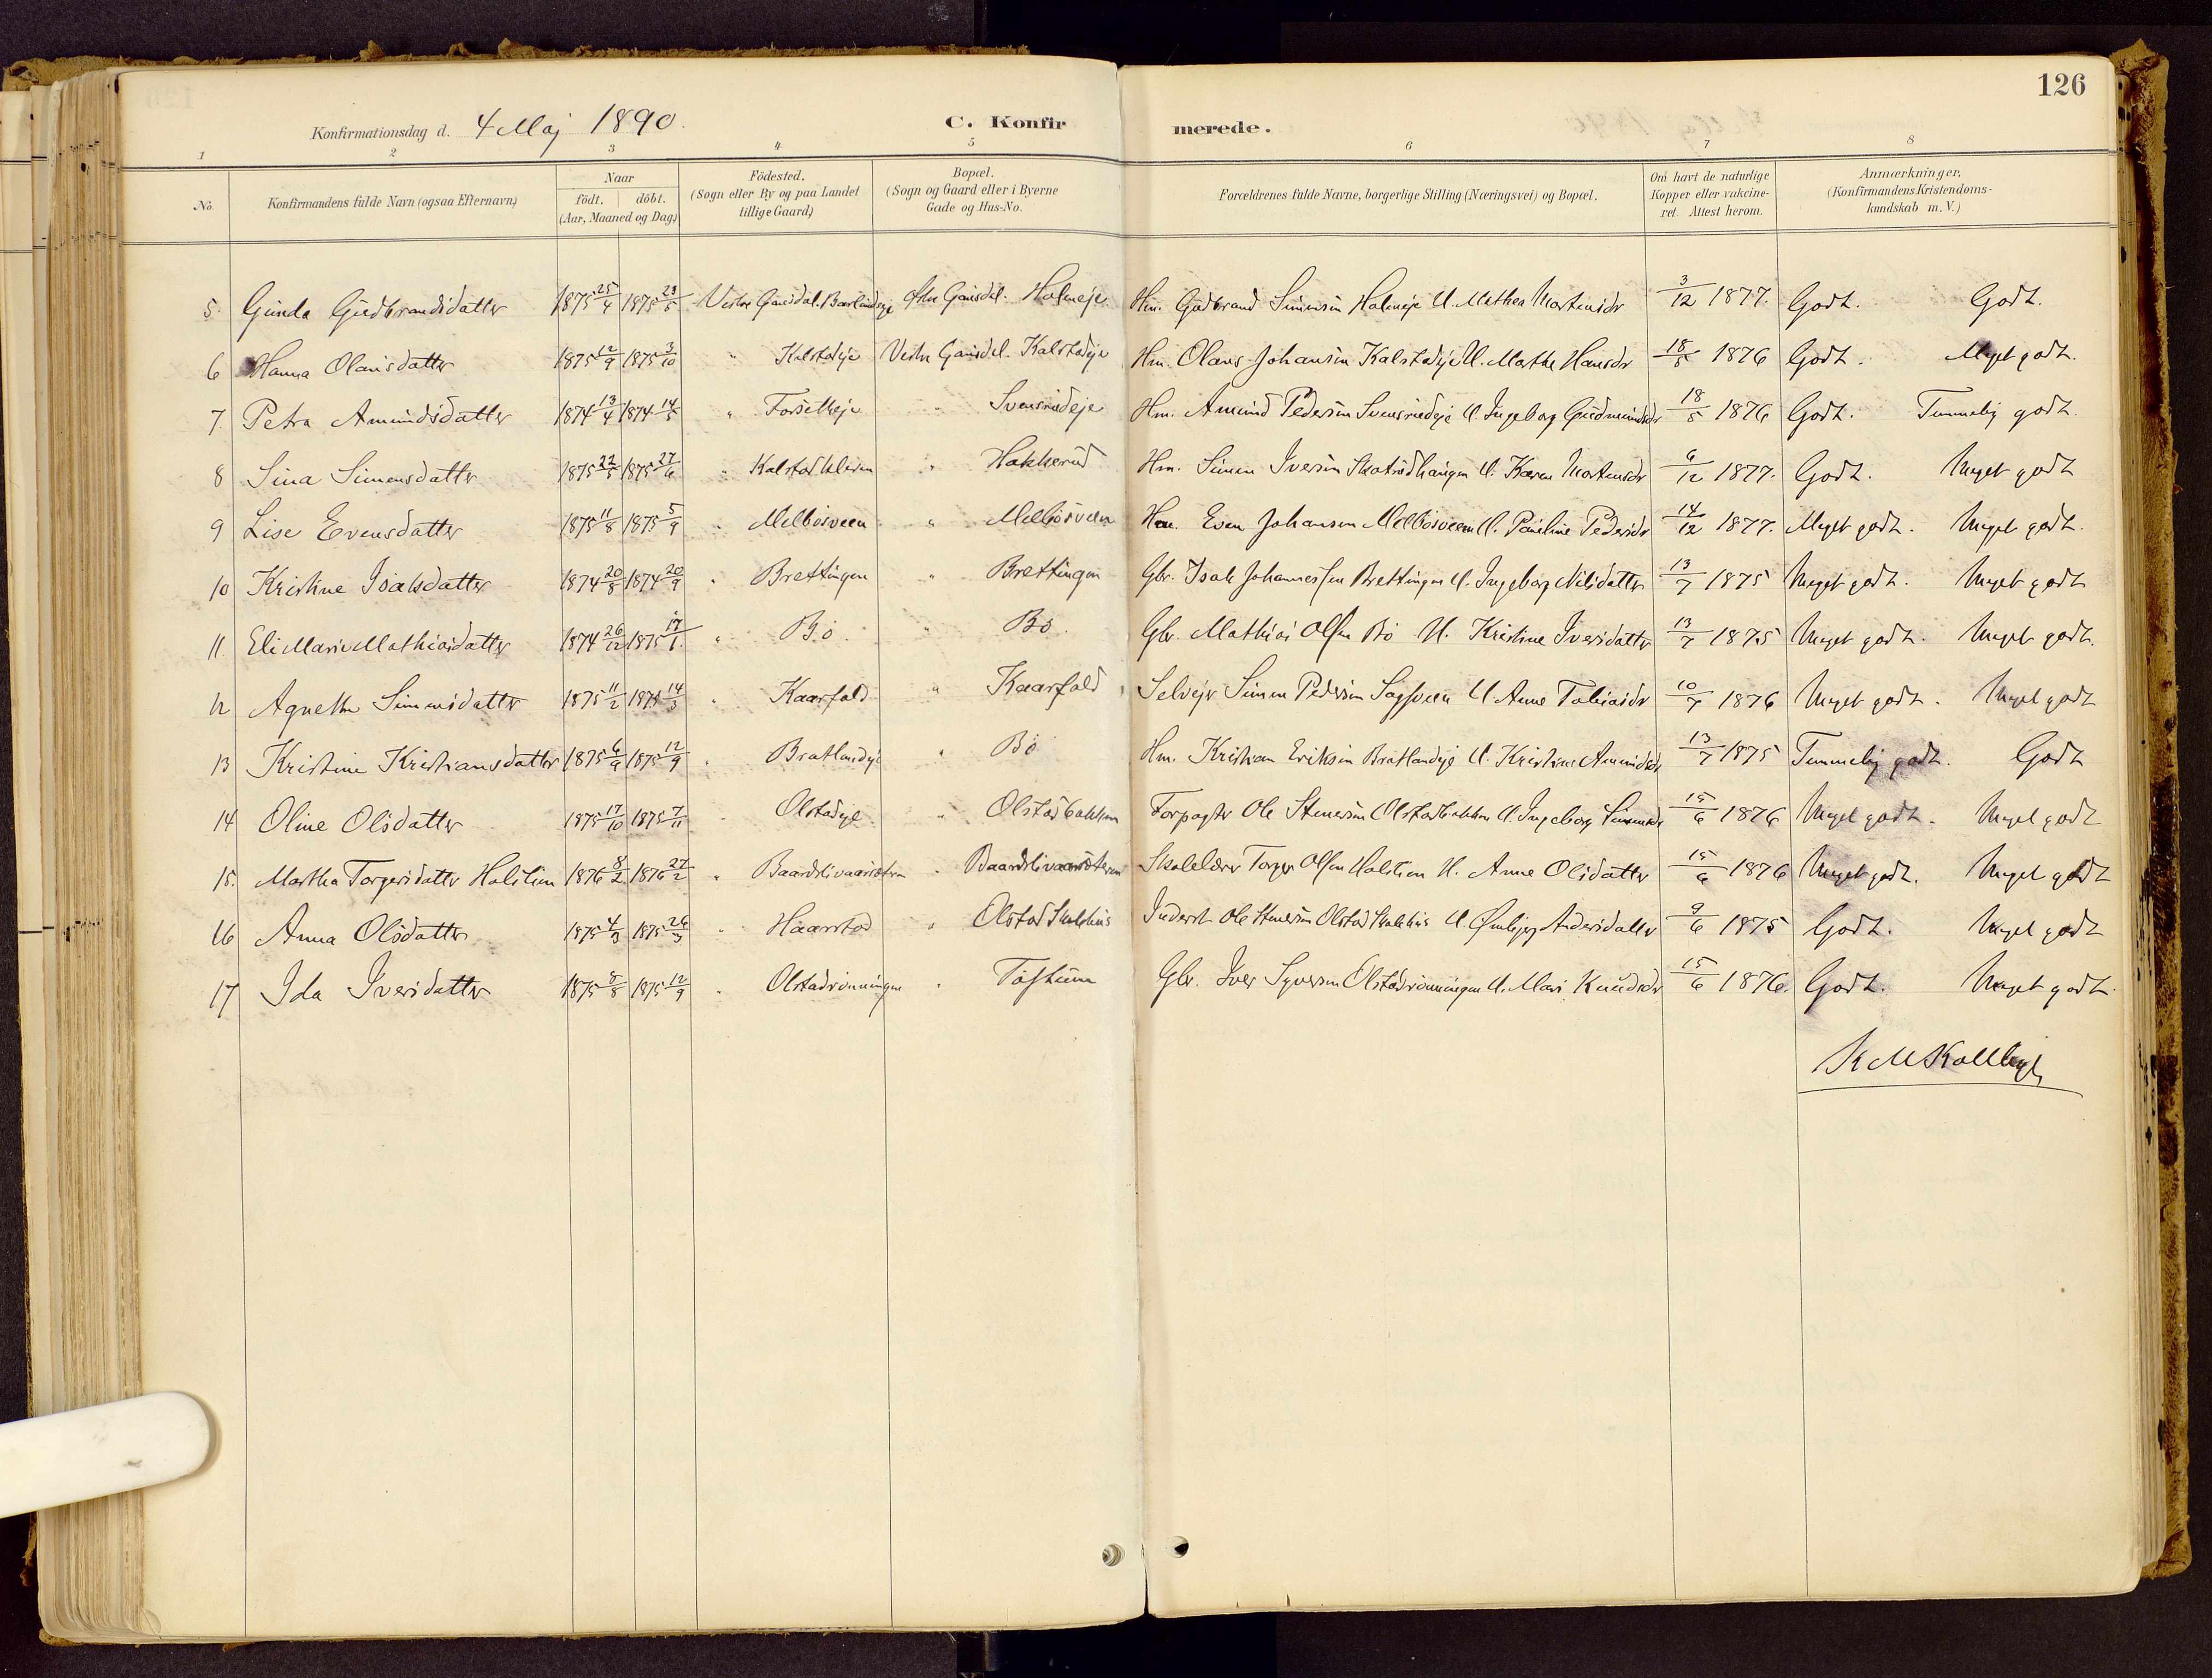 126
Konfirmationsdag d. 4 Maj 1890. C. Konfirmerede.
1 2 3 4 5 6 7 8
No. Konfirmandens fulde Navn (ogsaa Efternavn) Naar födt. döbt. (Aar, Maaned og Dag) Födested. (Sogn eller By og paa Landet tillige Gaard) Bopæl. (Sogn og Gaard eller i Byerne Gade og Hus-No. Forældrenes fulde Navne, borgerlige Stilling (Næringsvei) og Bopæl. Om havt de naturlige Kopper eller vakcineret. Attest herom. Anmærkninger, (Konfirmandens Kristendomskundskab m. V.)
5. Gunda Gudbrandsdatter 1875 25/4 1875 23/5 Vestre Gausdal. Østre Gausdal. Holmeje. Hm. Gudbrand Simensen Holmeje U. Mathea Mortensdr 3/12 1877. Godt. Godt.
6 Hanna Olausdatter 1875 12/9 1875 3/10 " Kalstadeje Vestre Gausdal. Kalstadeje Hm. Olaus Johansen Kalstadeje U. Marthe Hansdr 18/5 1876 Godt. Meget godt.
7. Petra Amundsdatter 1874 13/4 1874 14/5 " Forsetheje " Svensrudeje Hm. Amund Pedersen Svensrudeje U. Ingeborg Gudmundsdr 18/5 1876 Godt. Temmelig godt.
8 Sina Simensdatter 1875 22/5 1875 27/6 " " Hakkerud Hm. Simen Iversen U. Karen Mortensdr 6/12 1877. Godt. Meget godt
9 Lise Evensdatter 1875 11/8 1875 5/9 " Melbösveen " Melbösveen Hm. Even Johansen Melbösveen U. Pauline Pedersdr 14/12 1877. Meget godt. Meget godt.
10 Kristine Isaksdatter 1874 20/8 1874 20/9 " Brettingen " Brettingen Gbr. Isak Johannessen Brettingen U. Ingeborg Nilsdatter 13/7 1875 Meget godt. Meget godt
11. Eli Marie Mathiasdatter 1874 26/12 1875 17/1. " Bö. " Bö. Gbr. Mathias Olsen Bö U. Kristine Iversdatter 13/7 1875 Meget godt. Meget godt.
12 Agnethe Simensdatter 1875 11/2 1875 14/3 " Kaarfald " Kaarfald Selvejer Simen Pedersen Sagsveen U. Anne Tobiasdr 10/7 1876 Meget godt. Meget godt
13 Kristine Kristiansdatter 1875 12/9 " Bratlandeje " Bö Hm. Kristian Eriksen Bratlandeje U. Kristine Amundsdr 13/7 1875 Temmelig godt. Godt
14 Oline Olsdatter 1875 17/10 1875 7/11 " Olstadeje " Olstadbakken Forpagter Ole Stenersen Olstadbakken U. Ingeborg Simensdr 15/6 1876 Meget godt. Meget godt
15. Martha Torgersdatter Holstien 1876 8/2 1876 27/2 " " Skolelærer Torger Olsen Holstien U. Anne Olsdatter 15/6 1876 Meget godt. Meget godt
16 Anna Olsdatter 1875 4/3 1875 26/3 " Haarstad " Olstad Skolehus Inderst Ole Stenersen Olstad Skolehus U. Andersdatter 9/6 1875 Godt. Meget godt
17 Ida Iversdatter 1875 8/8 1875 12/9 " Olstadrönningen " Toftum Gbr. Iver Syversen Olstadrönningen U. Mari Knudsdr 15/6 1876. Godt. Meget godt.